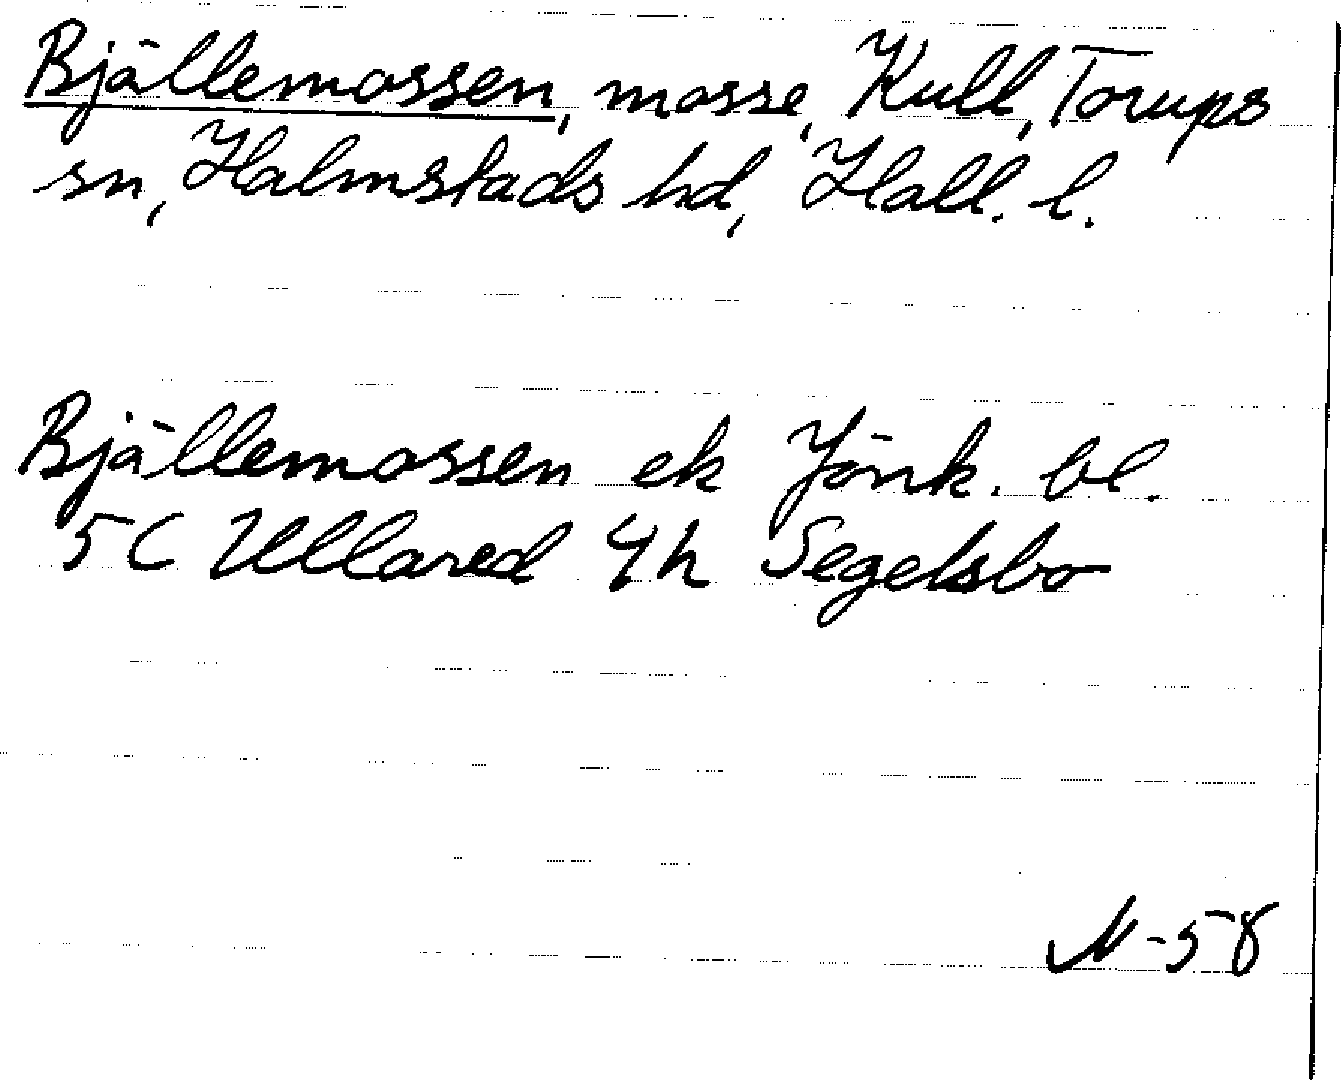 Bjällemossen, mosse, Kull, Torups
sn, Halmstads hd, Hall. l.
Bjällemossen ek Jönk. bl.
5C Ullared 4h Segelsbo
N-58